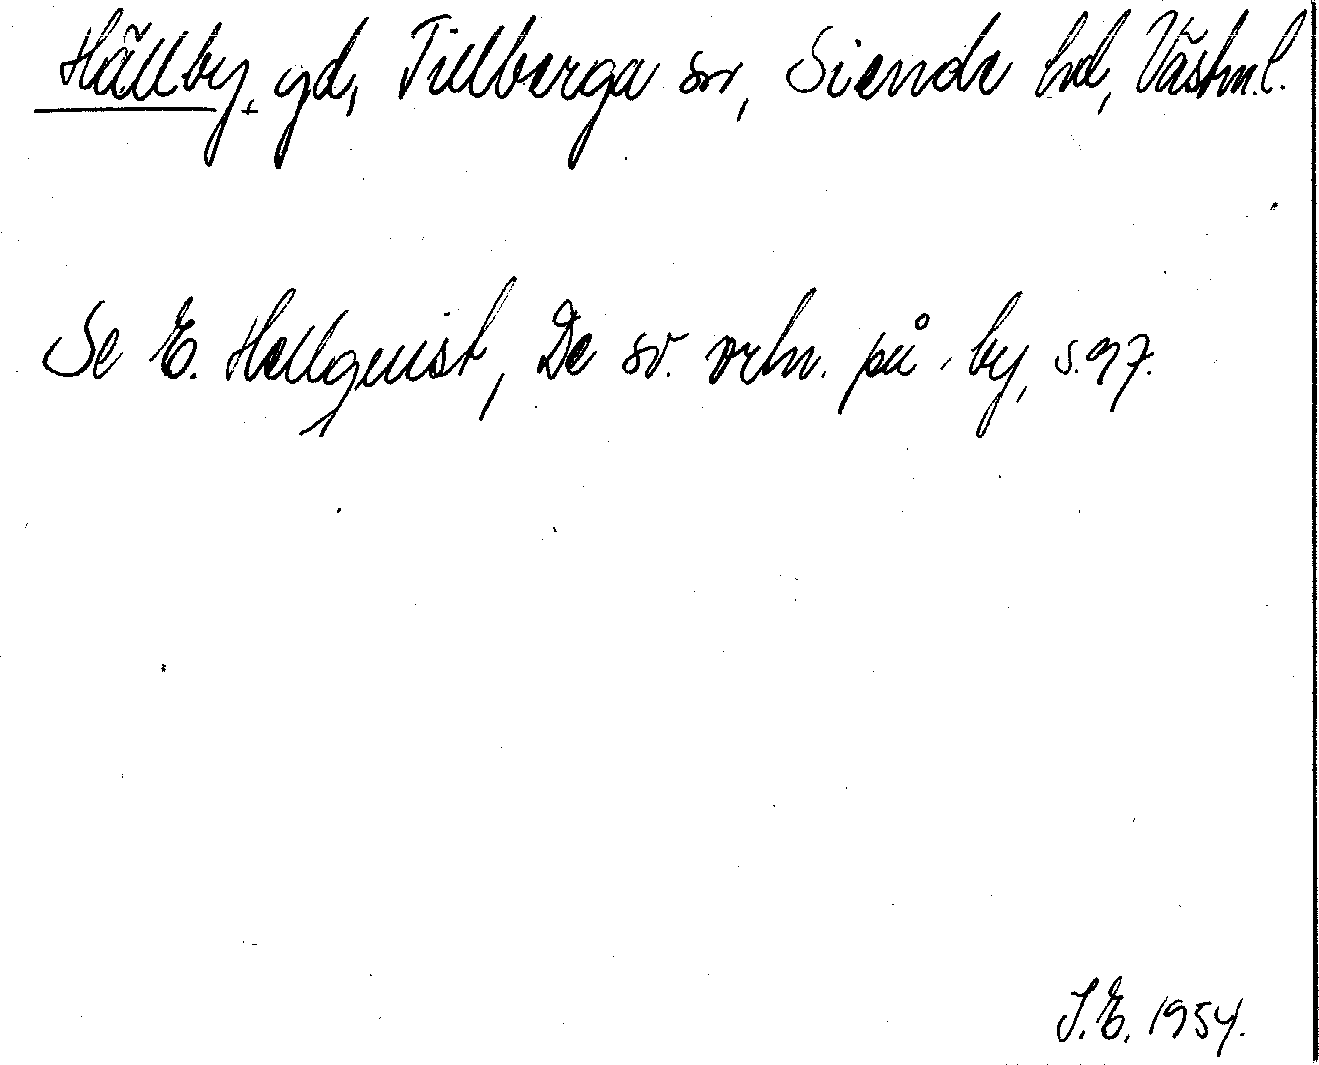 Hällby, gd, Tillberga sn, Siende hd, Västm.l.
Se E. Hellquist, De sv. ortn. på -by, s. 97.
I.E. 1954.